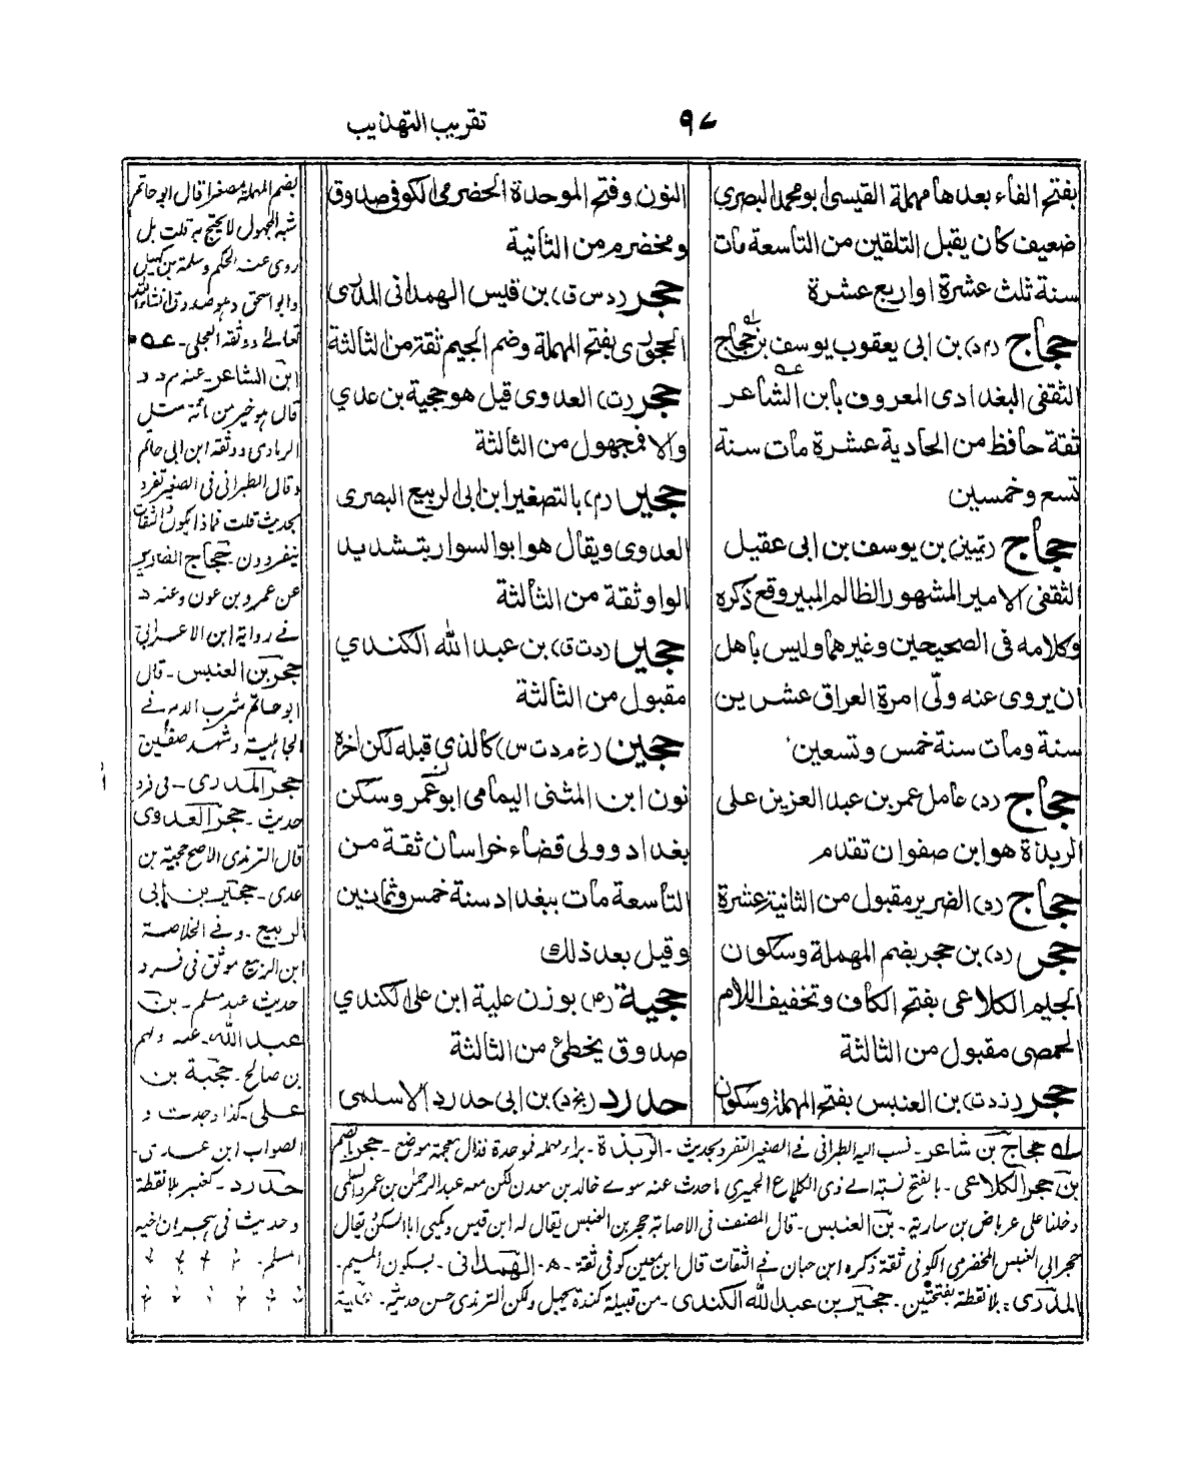 ٩٧
تقريب التهذيب
بفتح الفاء بعدها مهملة القيسى ابو محمد البصري
ضعيف كان يقبل التلقين من التاسعة مات
سنة ثلث عشرة او اربع عشرة
حجاج (م د) بن ابى يعقوب يوسف بن حجاج
الثقفى البغدادى المعروف بابن الشاعر
ثقة حافظ من الحادية عشرة مات سنة
تسع وخمسين
حجاج (تمييز) بن يوسف بن ابى عقيل
الثقفى الامير المشهور الظالم المبير وقع ذكره
وكلامه فى الصحيحين وغيرهما وليس باهل
ان يروى عنه ولّى امرة العراق عشرين
سنة ومات سنة خمس وتسعين
حجاج (د) عامل عمر بن عبد العزيز على
الربذة هو ابن صفوان تقدم
حجاج (د) الضرير مقبول من الثانية عشرة
حجر (د) بن حجر بضم المهملة وسكون
الجيم الكلاعى بفتح الكاف وتخفيف اللام
الحمصى مقبول من الثالثة
حجر (ز د ت) بن العنبس بفتح المهملة وسكون
النون وفتح الموحدة الحضرمى الكوفى صدوق
ومخضرم من الثانية
حجر (د س ق) بن قيس الهمدانى المدرى
الحجورى بفتح المهملة وضم الجيم ثقة من الثالثة
حجر (ت) العدوى قيل هو حجية بن عدي
والا فمجهول من الثالثة
حجير (م) بالتصغير ابن ابى الربيع البصرى
العدوى ويقال هو ابو السوار بتشديد
الواو ثقة من الثالثة
حجير (د ت ق) بن عبد الله الكندي
مقبول من الثالثة
حجين (خ م د ت س) كالذى قبله لكن اخره
نون ابن المثنى اليمامى ابو عمر وسكن
بغداد وولى قضاء خراسان ثقة من
التاسعة مات ببغداد سنة خمس وثمانين
وقيل بعد ذلك
حجية (ع) بوزن علية ابن على الكندي
صدوق يخطئ من الثالثة
حدرد (بخ د) بن ابى حدرد الاسلمى
بضم المهملة مصغرا قال ابو حاتم
شبه المجهول لا يحتج به قلت بل
روى عنه الحكم وسلمة بن كهيل
وابو اسحق وهو صدوق انشاء الله
تعالى ووثقه العجلى-
ابن الشاعر- عنه م د
قال هو خير من مائة مثل
الرمادى ووثقه ابن ابى حاتم
وقال الطبرانى فى الصغير تفرد
بحديث قلت فماذا يكون الثقات
ينفردون- حجاج الضرير
عن عمرو بن عون وعنه د
فى رواية ابن الاعرابى
حجر بن العنبس- قال
ابو حاتم شرب الدم فى
الجاهلية وشهد صفين
حجر المدرى- فى فرد
حديث- حجر العدوى
قال الترمذى الاصح حجية بن
عدى- حجير بن ابى
الربيع- وفى الخلاصة
ابن الربيع موثق فى فرد
حديث عند مسلم- بن
عبد الله- عنه دلهم
بن صالح- حجية بن
على- كذا وجدت و
الصواب ابن عدى-
حدرد- كجعفر بلا نقطة
وحديث فى هجران اخيه
المسلم-
حجاج بن شاعر- نسب اليه الطبرانى فى الصغير التفرد بحديث- الربذة- براء مهملة فموحدة فذال معجمة موضع- حجر بالضم
بن حجر الكلاعى- بالفتح نسبة الى ذى الكلاع الحميرى ما حدث عنه سوى خالد بن معدن لكن معه عبد الرحمن بن عمرو السلمى
دخلنا على عرباض بن سارية- بن العنبس- قال المصنف فى الاصابة حجر بن العنبس يقال له ابن قيس ويكنى ابا السكن يقال
حجر ابى العنبس الحضرمى الكوفى ثقة ذكره ابن حبان فى الثقات قال ابن معين كوفى ثقة- الهمدانى- بسكون الميم-
المدرى: بلا نقطة بفتحتين- حجير بن عبد الله الكندى- من قبيلة كندة يجهل ولكن الترمذى حسن حديثه-